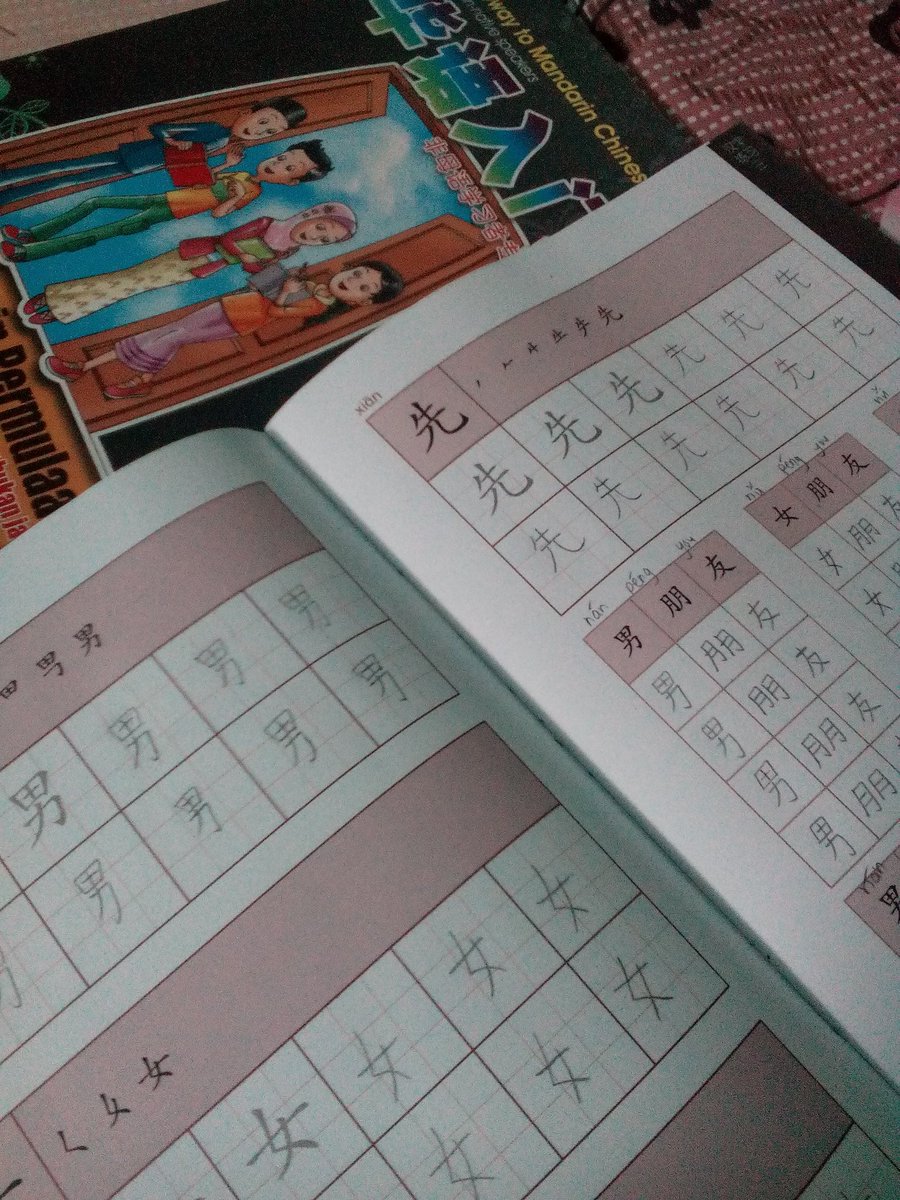 way to Mandarin Chines
-native speakers
语入门
Permulaa
bukan ja
男
男 男 男 男
男 男 男 男 男
𡿨 女 女
女 女 女 女
女 女 女
xiān
先
先
先 先 先 先 先 先
先 先 先 先 先 先
nán péng you
男朋友
男朋友
男朋友
男朋友
男朋
nǚ péng you
女朋友
女朋友
女
男